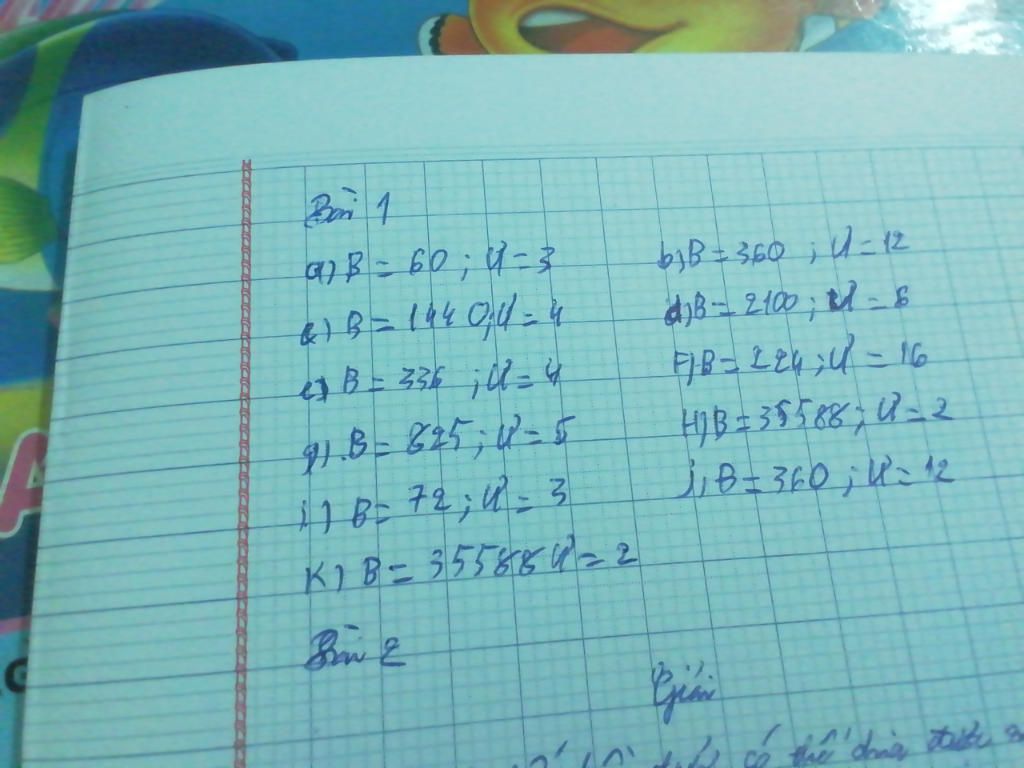 Bài 1
a) B = 60 ; Ư = 3 b) B = 360 ; Ư = 12
c) B = 1440; Ư = 4 d) B = 2100; Ư = 6
e) B = 336 ; Ư = 4 F) B = 224 ; Ư = 16
g) B = 825 ; Ư = 5 H) B = 35588 ; Ư = 2
i) B = 72 ; Ư = 3 j, B = 360 ; Ư = 12
K) B = 35588 Ư = 2
Bài 2
Giải
có thể chia được